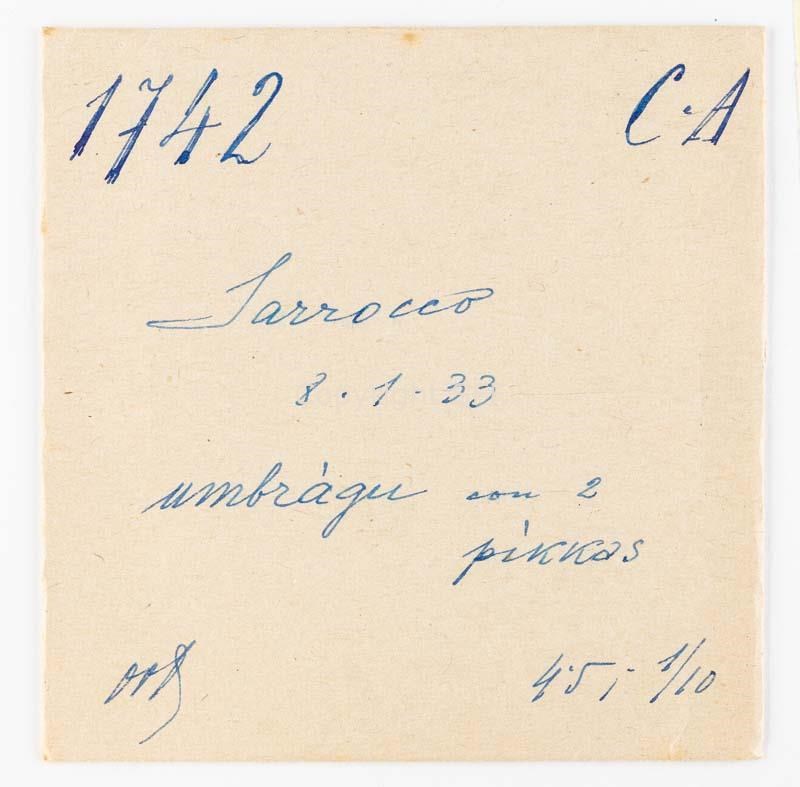 1742 C.A
Sarrocco
8.1.33
umbràgu con 2
pikkas
45; 1/10